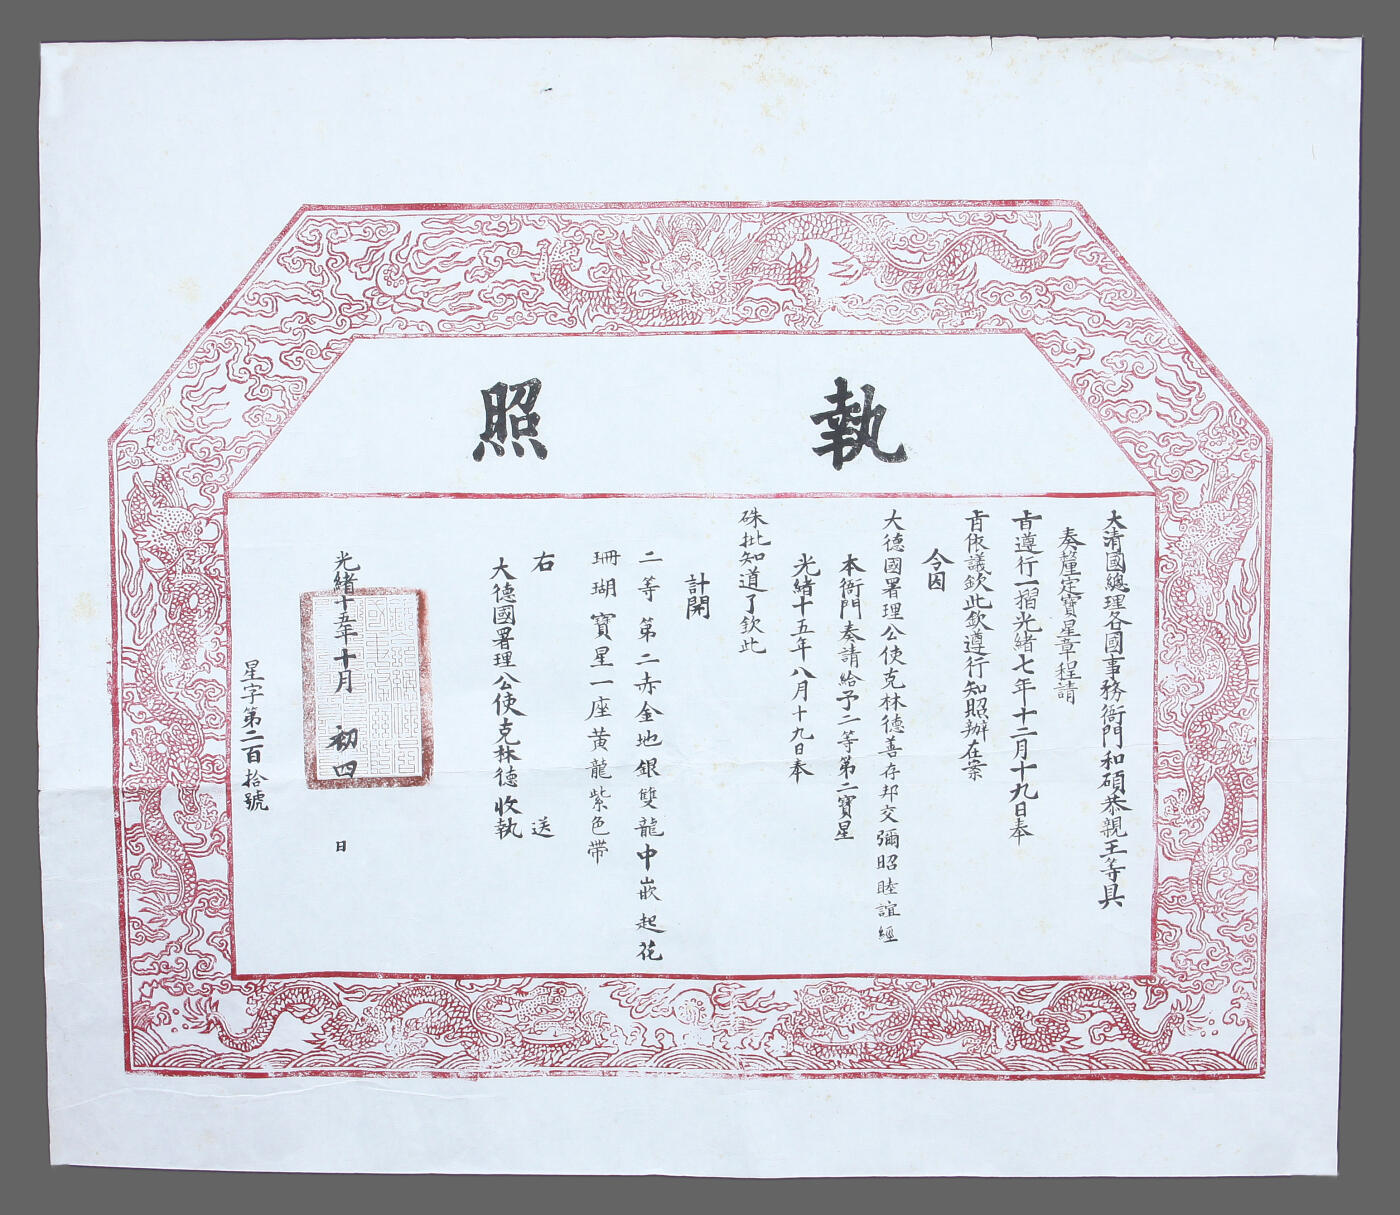 執照
大清國總理各國事務衙門和碩恭親王等具
奏釐定寶星章程請
旨遵行一摺光緒七年十二月十九日奉
旨依議欽此欽遵行知照辦在案
今因
大德國署理公使克林德善存邦交彌昭睦誼經
本衙門奏請給予二等第二寶星
光緒十五年八月十九日奉
硃批知道了欽此
計開
二等第二赤金地銀雙龍中嵌起花
珊瑚寶星一座黄龍紫色帶
右 送
大德國署理公使克林德收執
光緒十五年十月初四日
星字第二百拾號